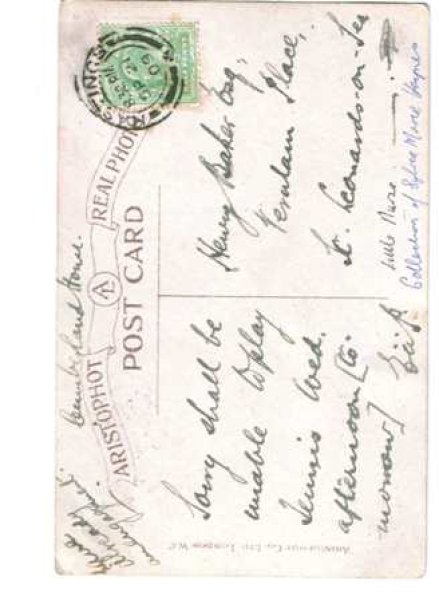 Cumberland House.
HASTINGS
SP 21
09
ARISTOPHOT REAL PHOTO
POST CARD
Sorry shall be
unable to play
Tennis Wed.
afternoon [to-
morrow]
Henry Baker Esq,
Verulam Place,
St. Leonards-on-Sea
Collection of
ARISTOPHOT CO., LTD. LONDON W.C.
already